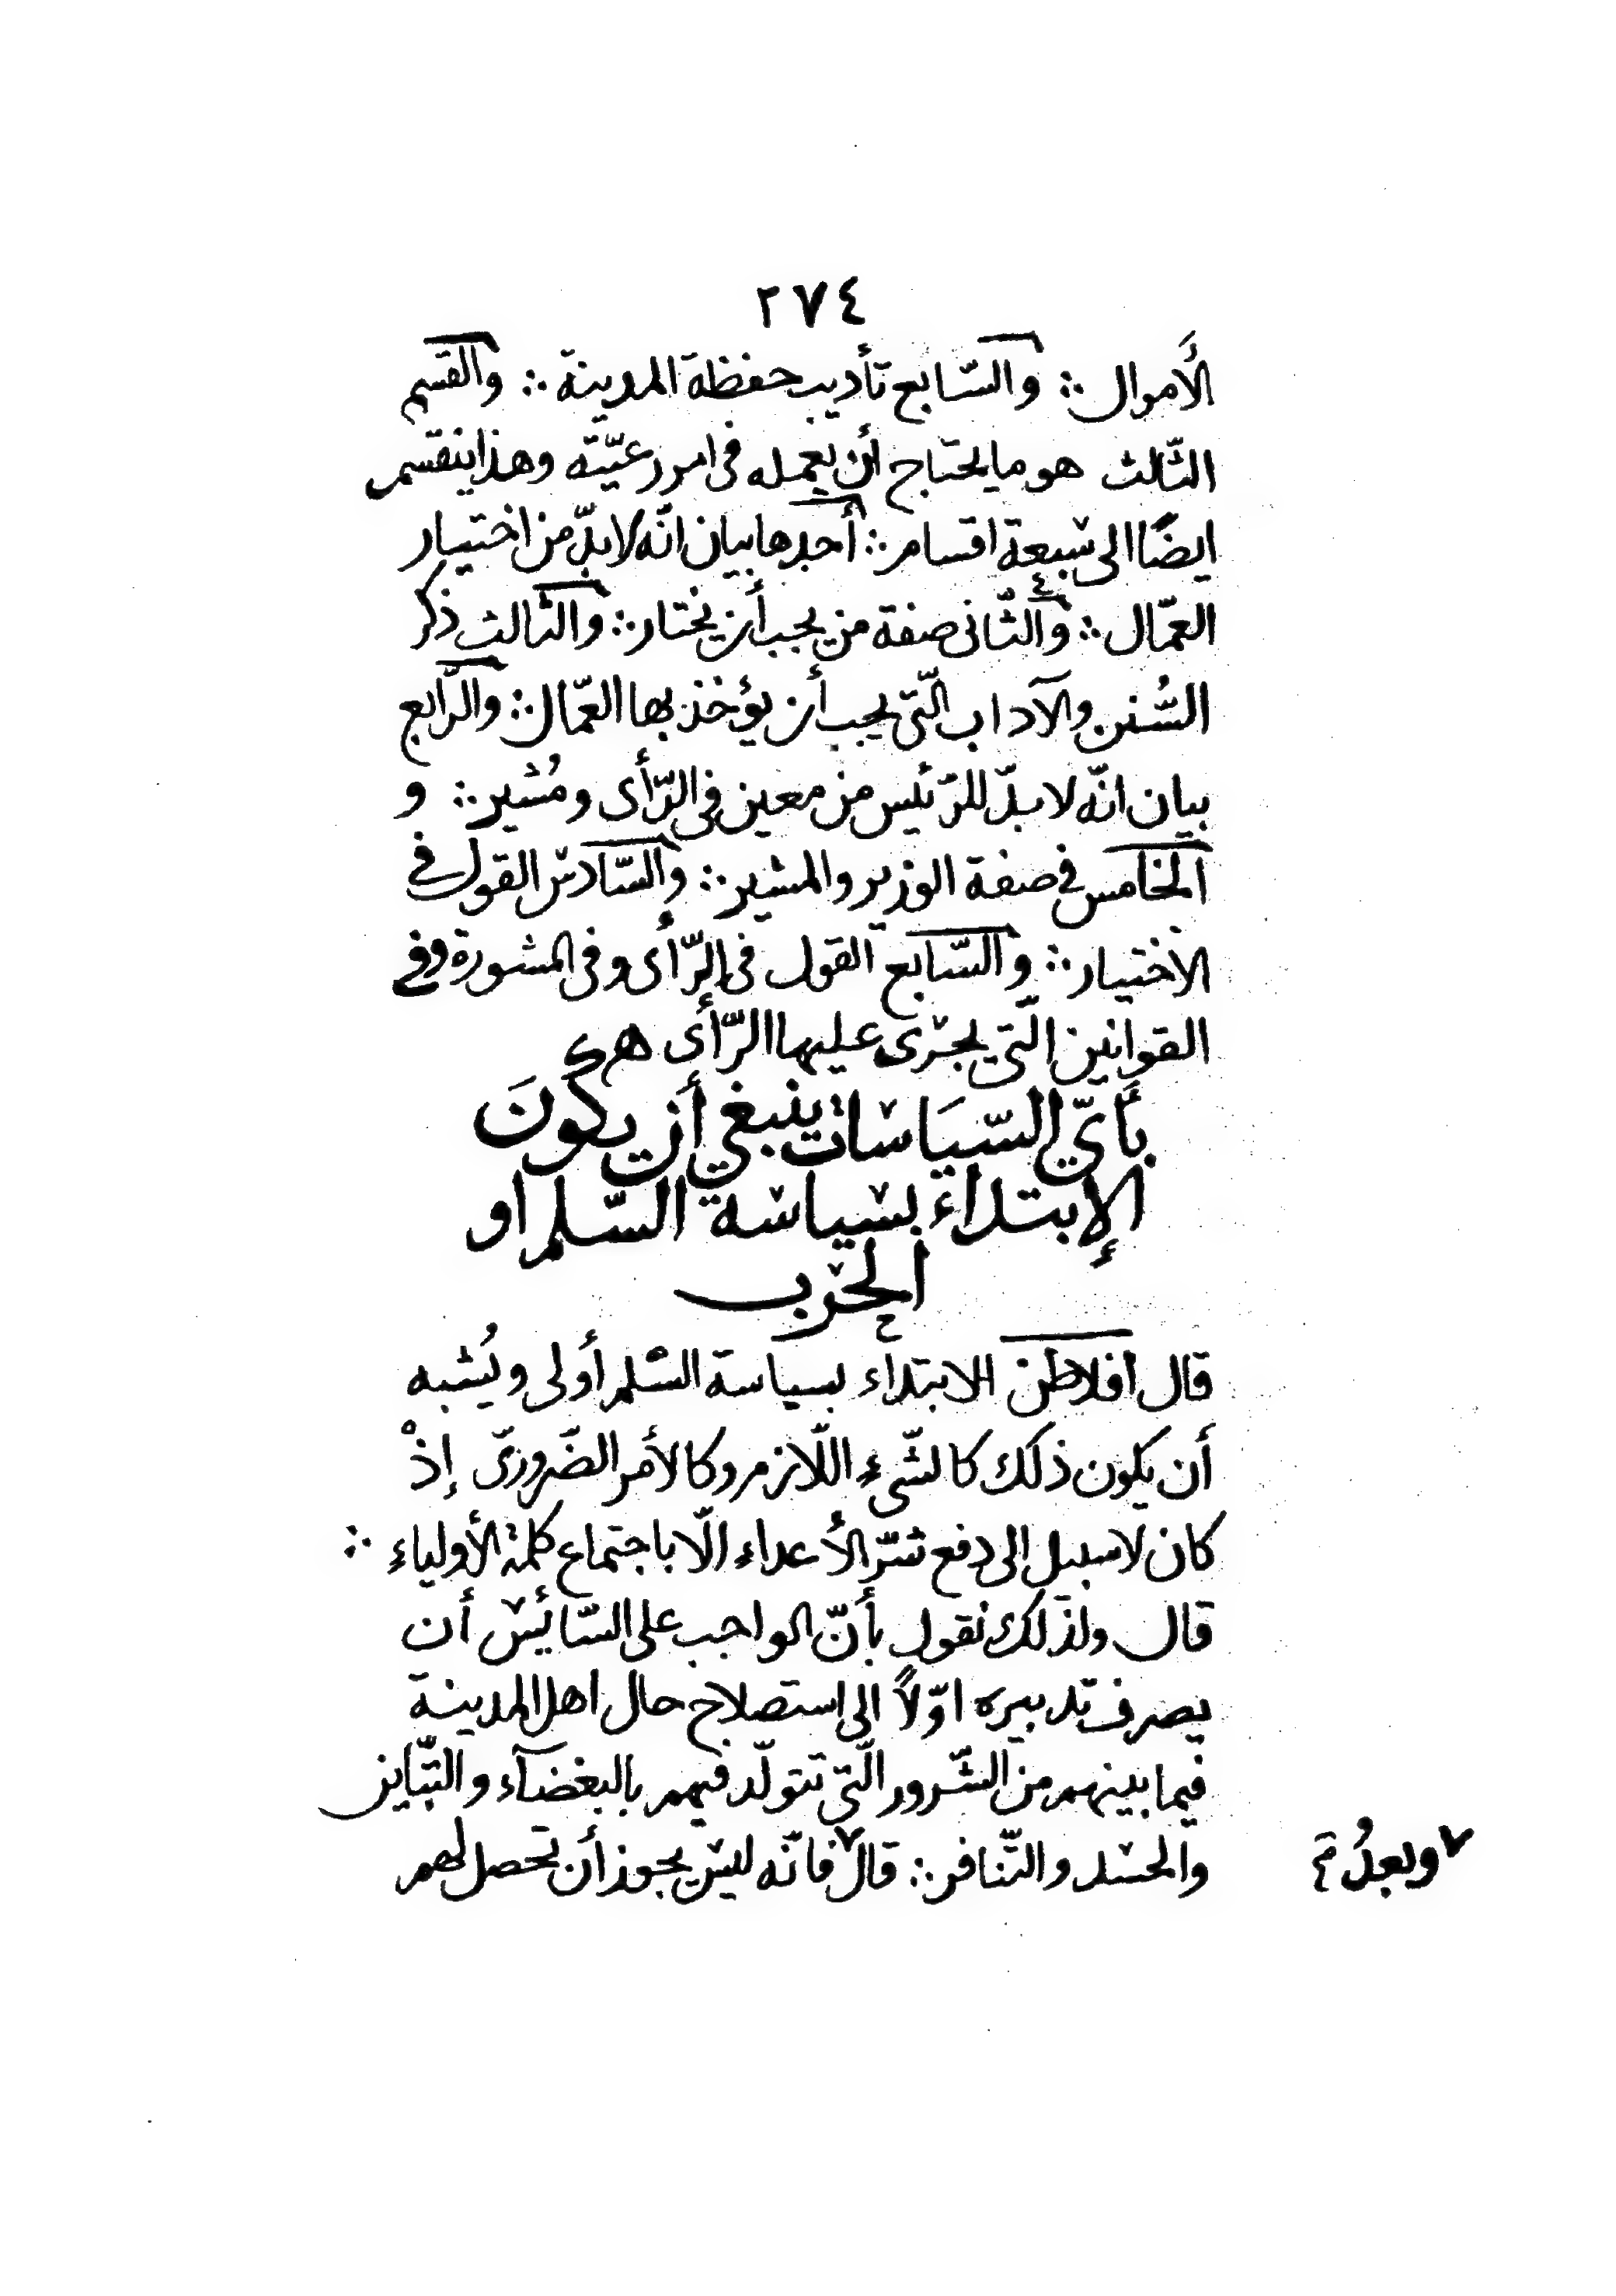 ٢٧٤
الأموال ∴ والسّابع تأديب حفظة المدينة ∴ والقسم
الثّالث هو ما يحتاج أن يعمله فى امر رعيّته وهذا ينقسم
ايضًا الى سبعة اقسام ∴ أحدها بيان انّه لا بدّ من اختيار
العمّال ∴ والثّانى صفة من يجب أن يختار ∴ والثالث ذكر
السُّنن والآداب الّتى يجب أن يؤخذ بها العمّال ∴ والرّابع
بيان انّه لا بدّ للرّئيس من معين فى الرّأى ومُشير ∴ و
الخامس فى صفة الوزير والمشير ∴ والسّادس القول فى
الاختيار ∴ والسّابع القول فى الرّأى وفى المشورة وفى
القوانين الّتى يجرى عليها الرّأى
بأىّ السّيَاسات ينبغي أن يكونَ
الإبتداء بسياسة السّلم او
الحرب
قال أفلاطن الابتداء بسياسة السّلم أولى ويُشبه
أن يكون ذلك كالشّىء اللّازم وكالأمر الضّرورىّ إذْ
كان لا سبيل الى دفع شرّ الأعداء الّا باجتماع كلمة الأولياء ∴
قال ولذلك نقول بأنّ الواجب على السّائس أن
يصرف تدبيره اوّلاً الى استصلاح حال اهل المدينة
فيما بينهم من الشّرور الّتى تتولّد فيهم بالبغضآء والتّباين
والحسد والتّنافر ∴ قال فانّه ليس يجوز أن تحصل لهم
وبعدُ